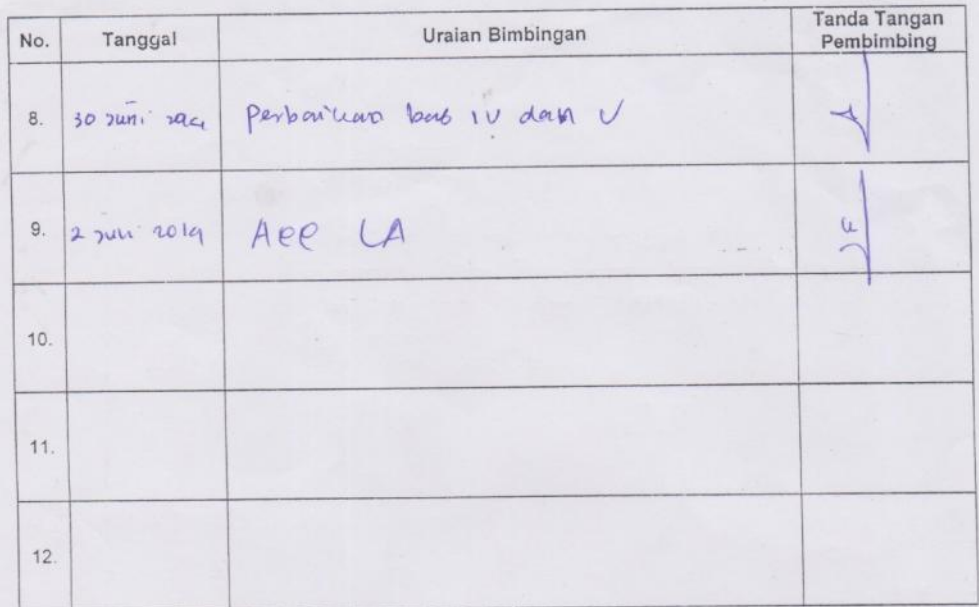 No. Tanggal Uraian Bimbingan Tanda Tangan
Pembimbing
8. 30 Juni Perbaikan bab IV dan V
9. 2 Juli 2019 Acc LA
10.
11.
12.